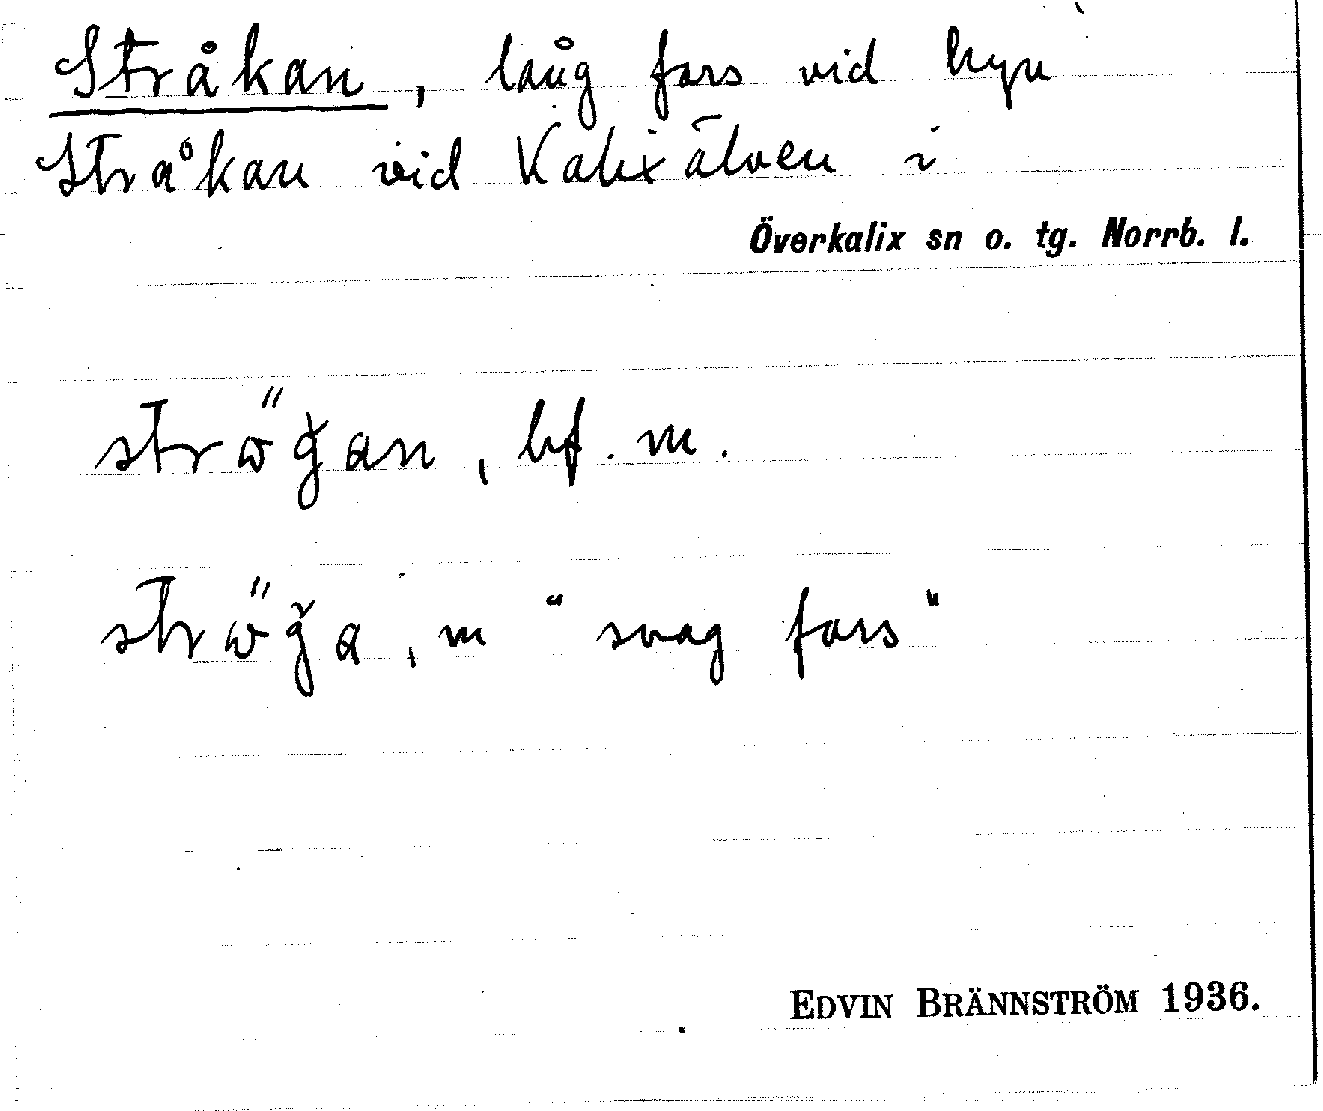 Stråkan, lång fors vid byn
Stråkan vid Kalixälven i
Överkalix sn o. tg. Norrb. l.
strω̋ǧan, bf. m.
strω̋ǧa, m "svag fors"
EDVIN BRÄNNSTRÖM 1936.